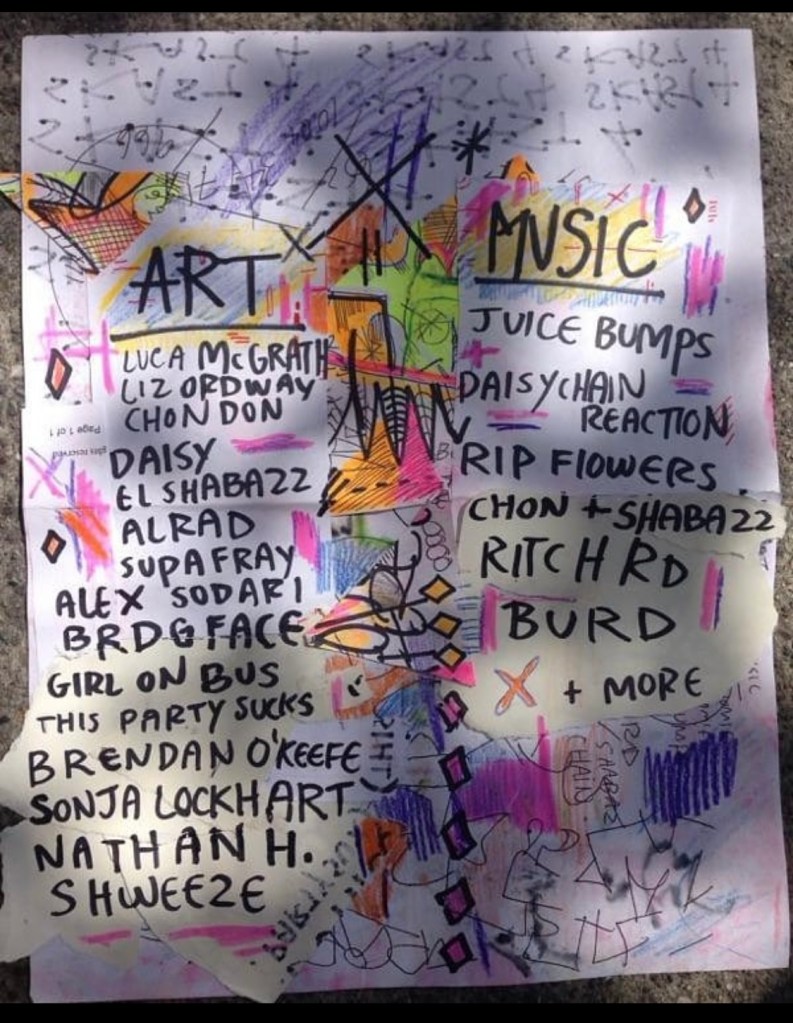 ART
LUCA McGRATH
LIZ ORDWAY
CHONDON
Page 1 of 1
DAISY
EL SHABAZZ
ALRAD
SUPA FRAY
ALEX SODARI
BRDGFACE
GIRL ON BUS
THIS PARTY SUCKS
BRENDAN O'KEEFE
SONJA LOCKHART
NATHAN H.
SHWEEZE
MUSIC
JUICE BUMPS
DAISYCHAIN
REACTION
RIP FLOWERS
CHON + SHABAZZ
RITCHRD
BURD
+ MORE
CHAIN
SHABAZ